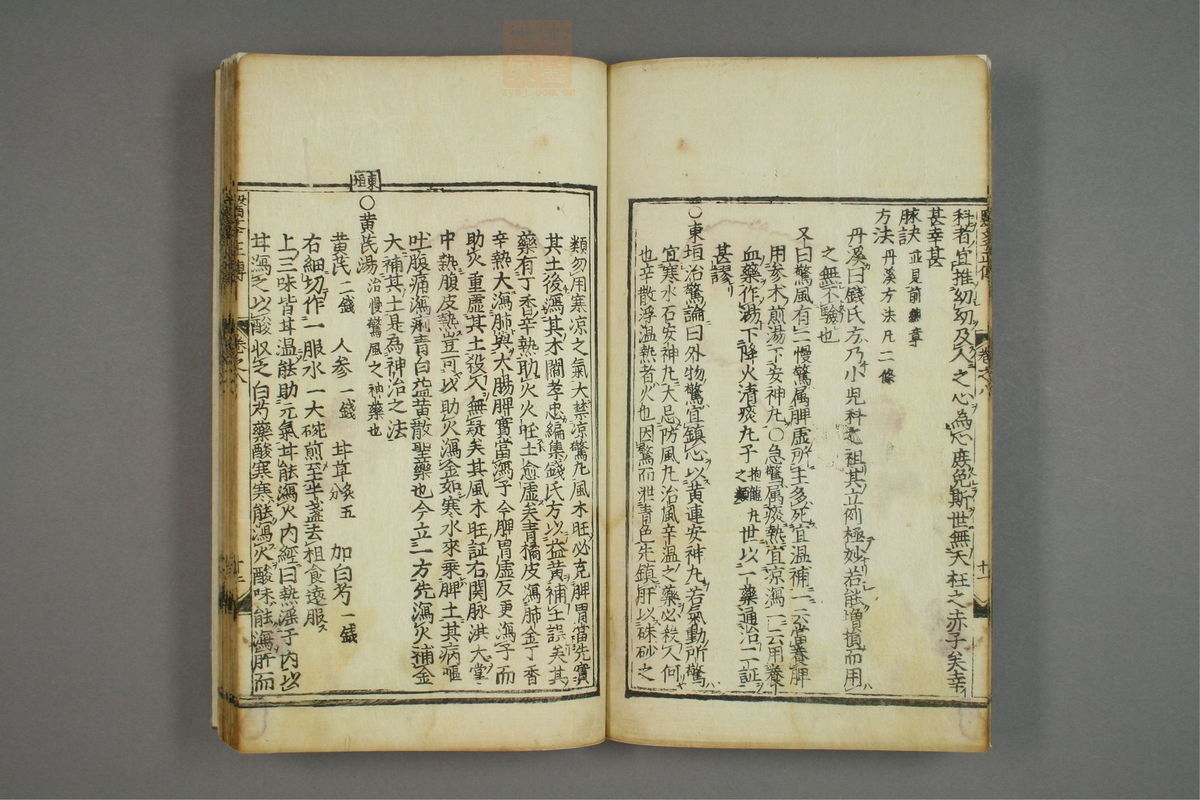 科者宜推幼幼及人之心為心庶免斯世無夭枉之赤子矣幸
甚幸甚
脉訣 並見前章
方法 丹溪方法凡二條
丹溪曰錢氏方乃小児科之祖其立例極妙若能増損而用
之無不驗也
又曰驚風有二慢驚属脾虚所主多死宜温補一云當養脾
用参术煎湯下安神丸〇急驚属痰熱宜凉瀉一云用養
血藥作湯下降火清痰丸子 抱龍丸之類 世以一藥通治二証
甚謬
〇東垣治驚論曰外物驚宜鎮心以黄連安神丸若氣動所驚
宜寒水石安神丸大忌防風丸治風辛温之藥必殺人何
也辛散浮温熱者火也因驚而泄青色先鎮肝以硃砂之
卷之八
十一
類勿用寒凉之氣大禁凉驚丸風木旺必克脾胃當先實
其土後瀉其木閻孝忠編集錢氏方以益黄補土誤矣其
藥有丁香辛熱助火火旺土愈虚矣青橘皮瀉肺金丁香
辛熱大瀉肺與大腸脾實當瀉子今脾胃虚反更瀉子而
助火重虚其土殺人無疑矣其風木旺証右関脉洪大掌
中熱腹皮熱豈可以助火瀉金如寒水來乗脾土其病嘔
吐腹痛瀉痢青白益黄散聖藥也今立一方先瀉火補金
大補其土是為神治之法
東垣
〇黄芪湯 治慢驚風之神藥也
黄芪二錢 人参一錢 甘草炙五分 加白芍一錢
右細切作一服水一大碗煎至半盞去柤食遠服
上三味皆甘温能助元氣甘能瀉火内經曰熱淫于内以
甘瀉之以酸収之白芍藥酸寒寒能瀉火酸味能瀉肝而
醫學正傳
卷之八
十二